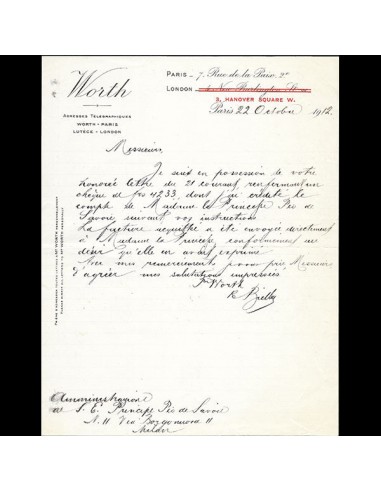 Worth
ADRESSES TÉLÉGRAPHIQUES
WORTH - PARIS
LUTECE - LONDON
PARIS - 7, Rue de la Paix. 2e
LONDON - 4 New Burlington St.
3, HANOVER SQUARE W.
Paris 22 Octobre 1912.
Messieurs
Je suis en possession de votre
honorée lettre du 21 courant renfermant un
chèque de frs 4233, dont j'ai crédité le
compte de Madame la Princesse Pio de
Savoie suivant vos instructions
La facture acquittée a été envoyée directement
à Madame la Princesse conformément au
désir qu'elle en avait exprimé
Avec mes remerciements je vous prie Messieurs
d'agréer mes salutations empressées
Pr Worth
Amministrazione
S. E. Principe Pio de Savoie
N. 11 Via Borgonuovo 11